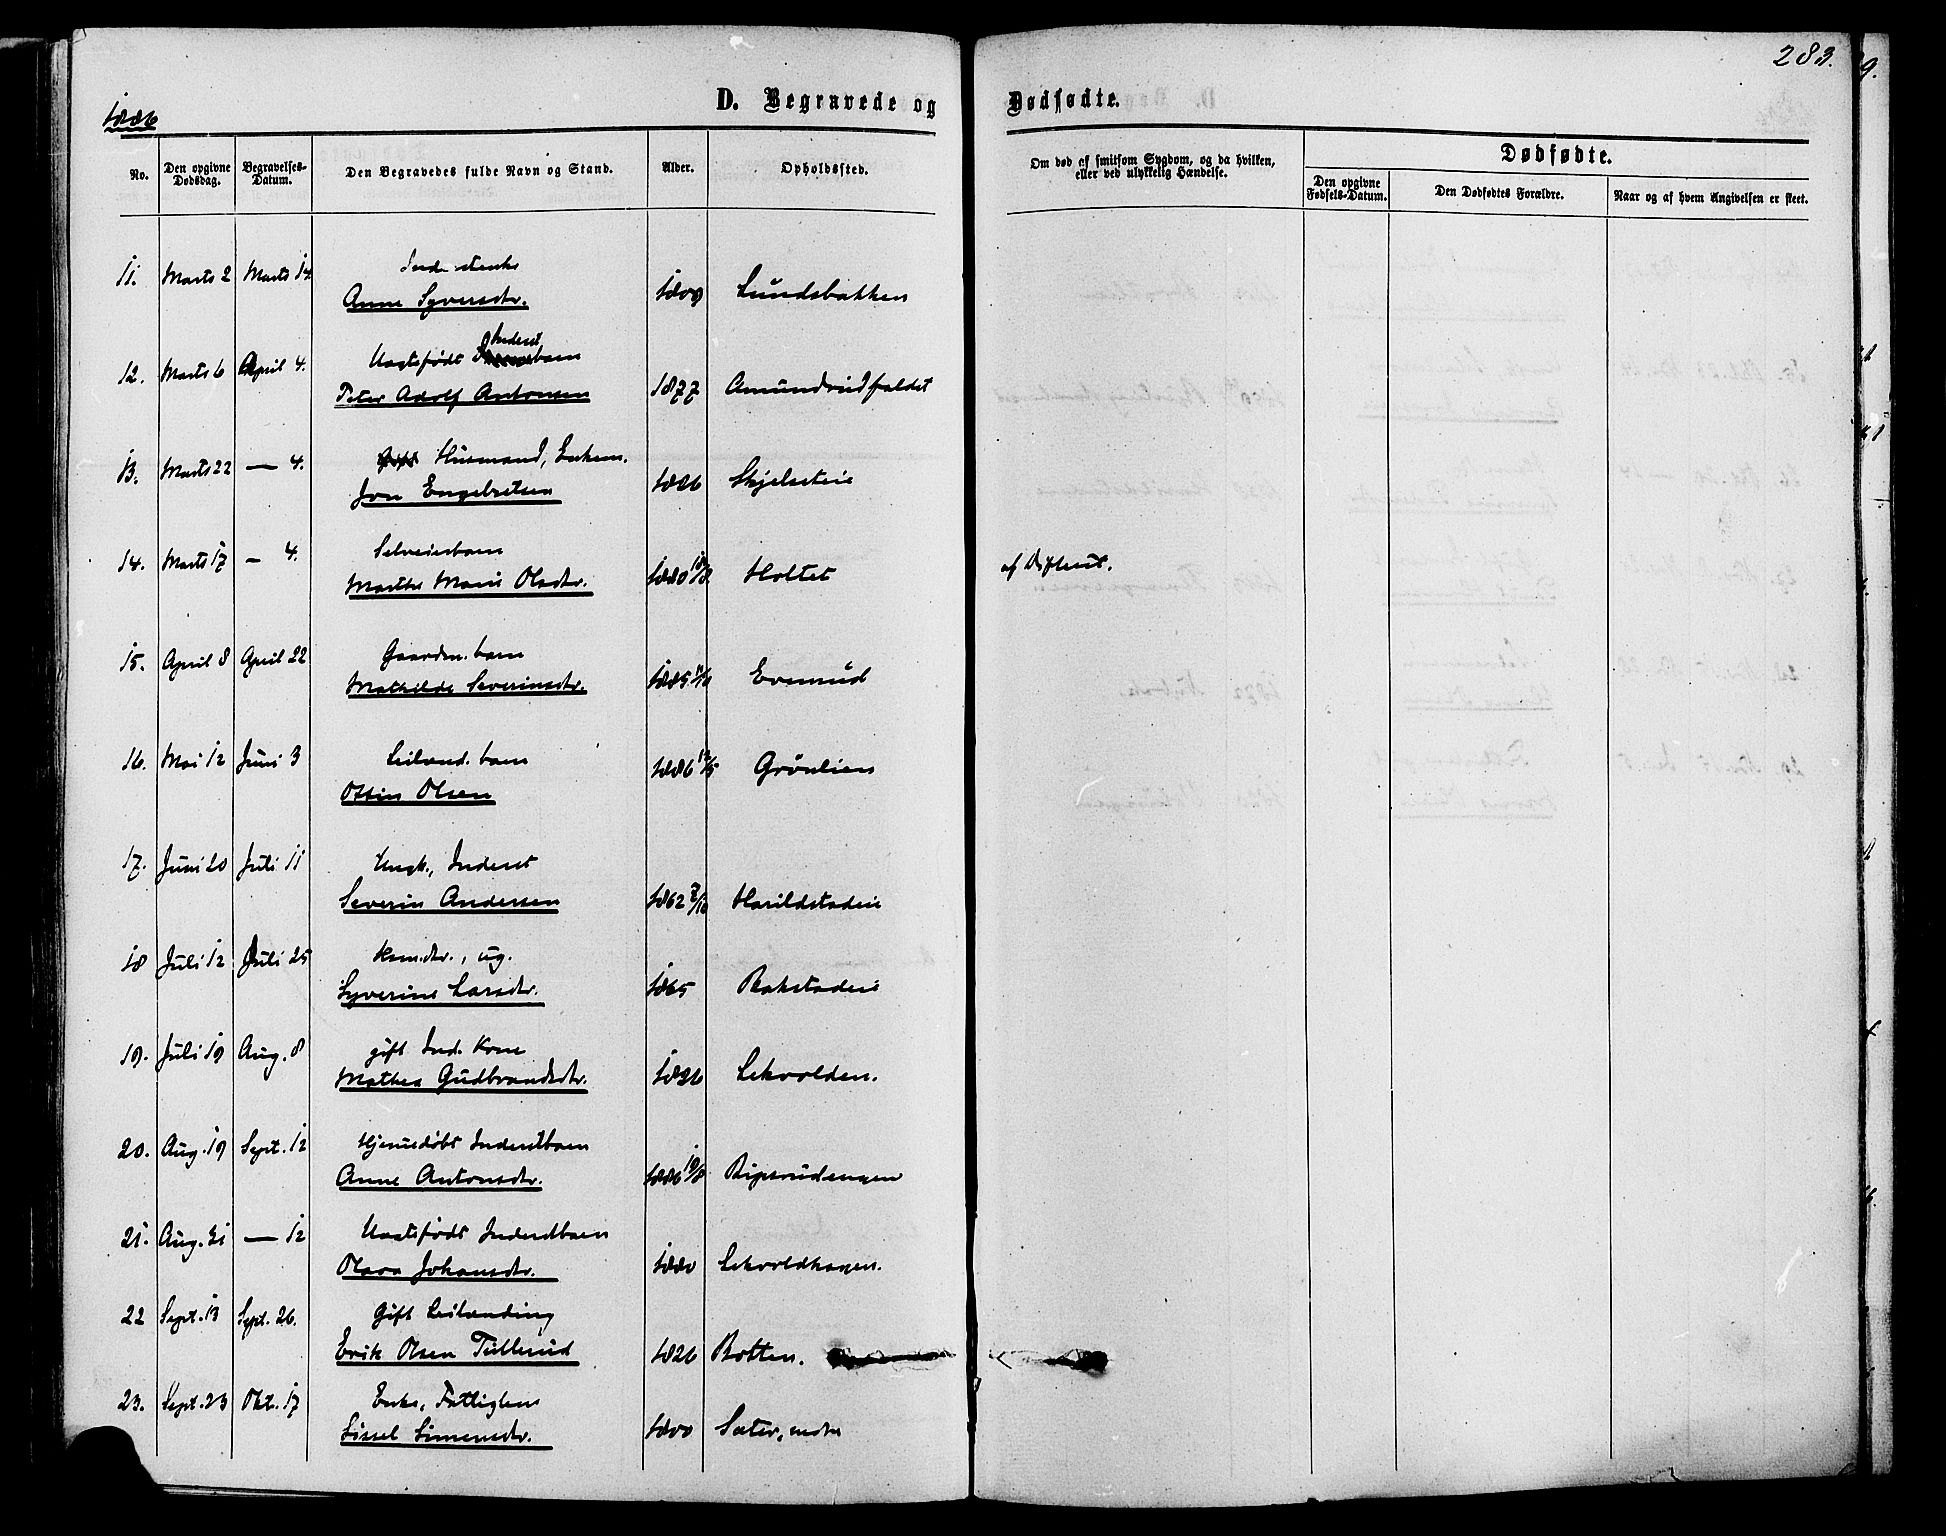 283.
1886
D. Begravede og Dødfødte.
No. Den opgivne Dødsdag. Begravelses-Datum. Den Begravedes fulde Navn og Stand. Alder. Opholdssted. Om død af smitsom Sygdom, og da hvilken, eller ved ulykkelig Hændelse.
Dødfødte.
Den opgivne Fødsels-Datum. Den Dødfødtes Forældre. Naar og af hvem Angivelsen er skeet.
11. Marts 2 Marts 14 Inderstenke
Anne Syversdr. 1809 Lundsbakken
12. Marts 6 April 4. Uægtefødt Inderst barn
Peter Adolf Antonsen 1877 Amundrudfaldet
13. Marts 22 — 4. Husmand, Enkem.
Jon Engebretsen 1826 Skjelseteie
14. Marts 17 — 4. Selveierbarn
Marthe Marie Olsdtr. 1880 18/8 Holtet af Difterit.
15. April 8 April 22 Gaardm. barn
Mathilde Severinsdtr. 1885 Evenrud
16. Mai 12 Juni 3 Leilænd. barn
Ottin Olsen 1886 12/5 Grönlien
17. Juni 20 Juli 11 Ungk., Inderst
Severin Andersen 1862 7/10 Harildstadeie
18 Juli 12 Juli 25 Husm.dtr., ug.
Syverine Larsdtr. 1865 Bakstadeie
19. Juli 19 Aug. 8 gift Ind. Kone
Mathea Gudbrandsdtr. 1826 Lekvolden.
20. Aug. 19 Sept. 12 Hjemmedøbt Inderstbarn
Anne Antonsdtr. 1886 19/8 Ripsrudengen
21. Aug. 31 — 12 Uægtefødt Inderstbarn
Olava Johansdtr. 1880 Lekvoldhagen.
22 Sept. 13 Sept. 26. Gift Leilænding
Erik Olsen Tullerud 1826 Botten.
23. Sept. 23 Okt. 17 Enke, Fattiglem
Sissel Simensdtr. 1800 Sæter, nedre